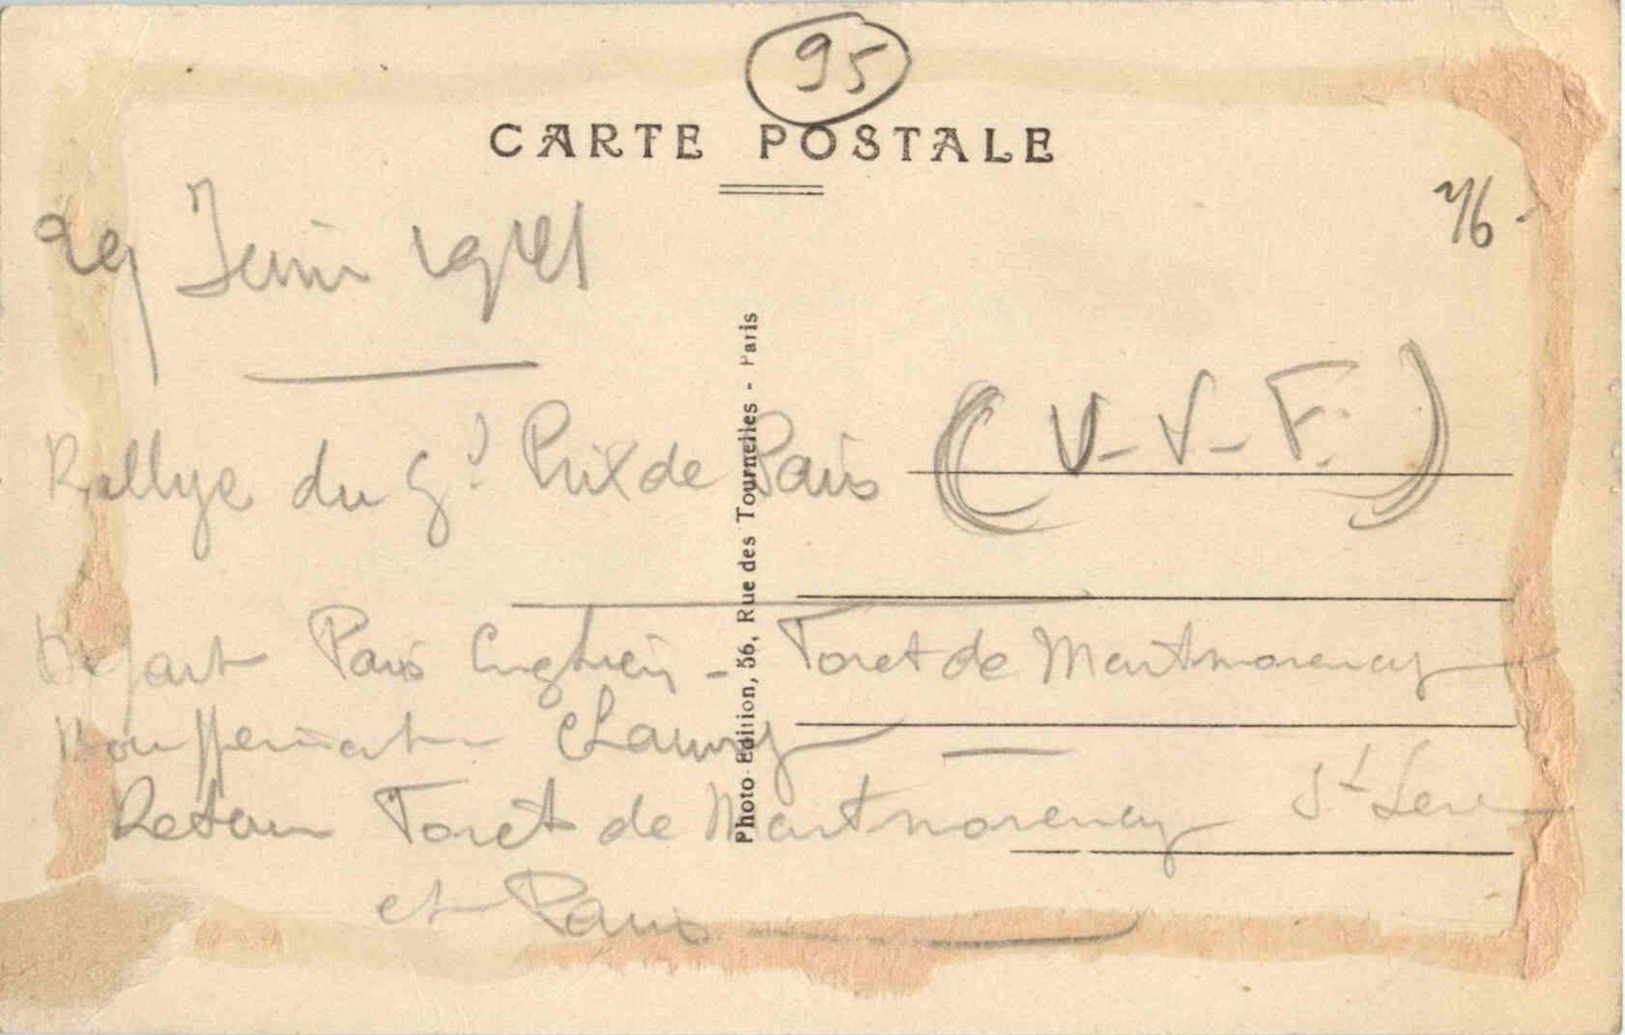 95
CARTE POSTALE
76-
29 Juin 1941
Rallye du Gd Prix de Paris (U-V-F.)
Départ Paris Enghien - Foret de Montmorency
Bouffemont Chauvry —
Retour Foret de Montmorency St Leu
et Paris
Photo-Edition, 56, Rue des Tournelles - Paris